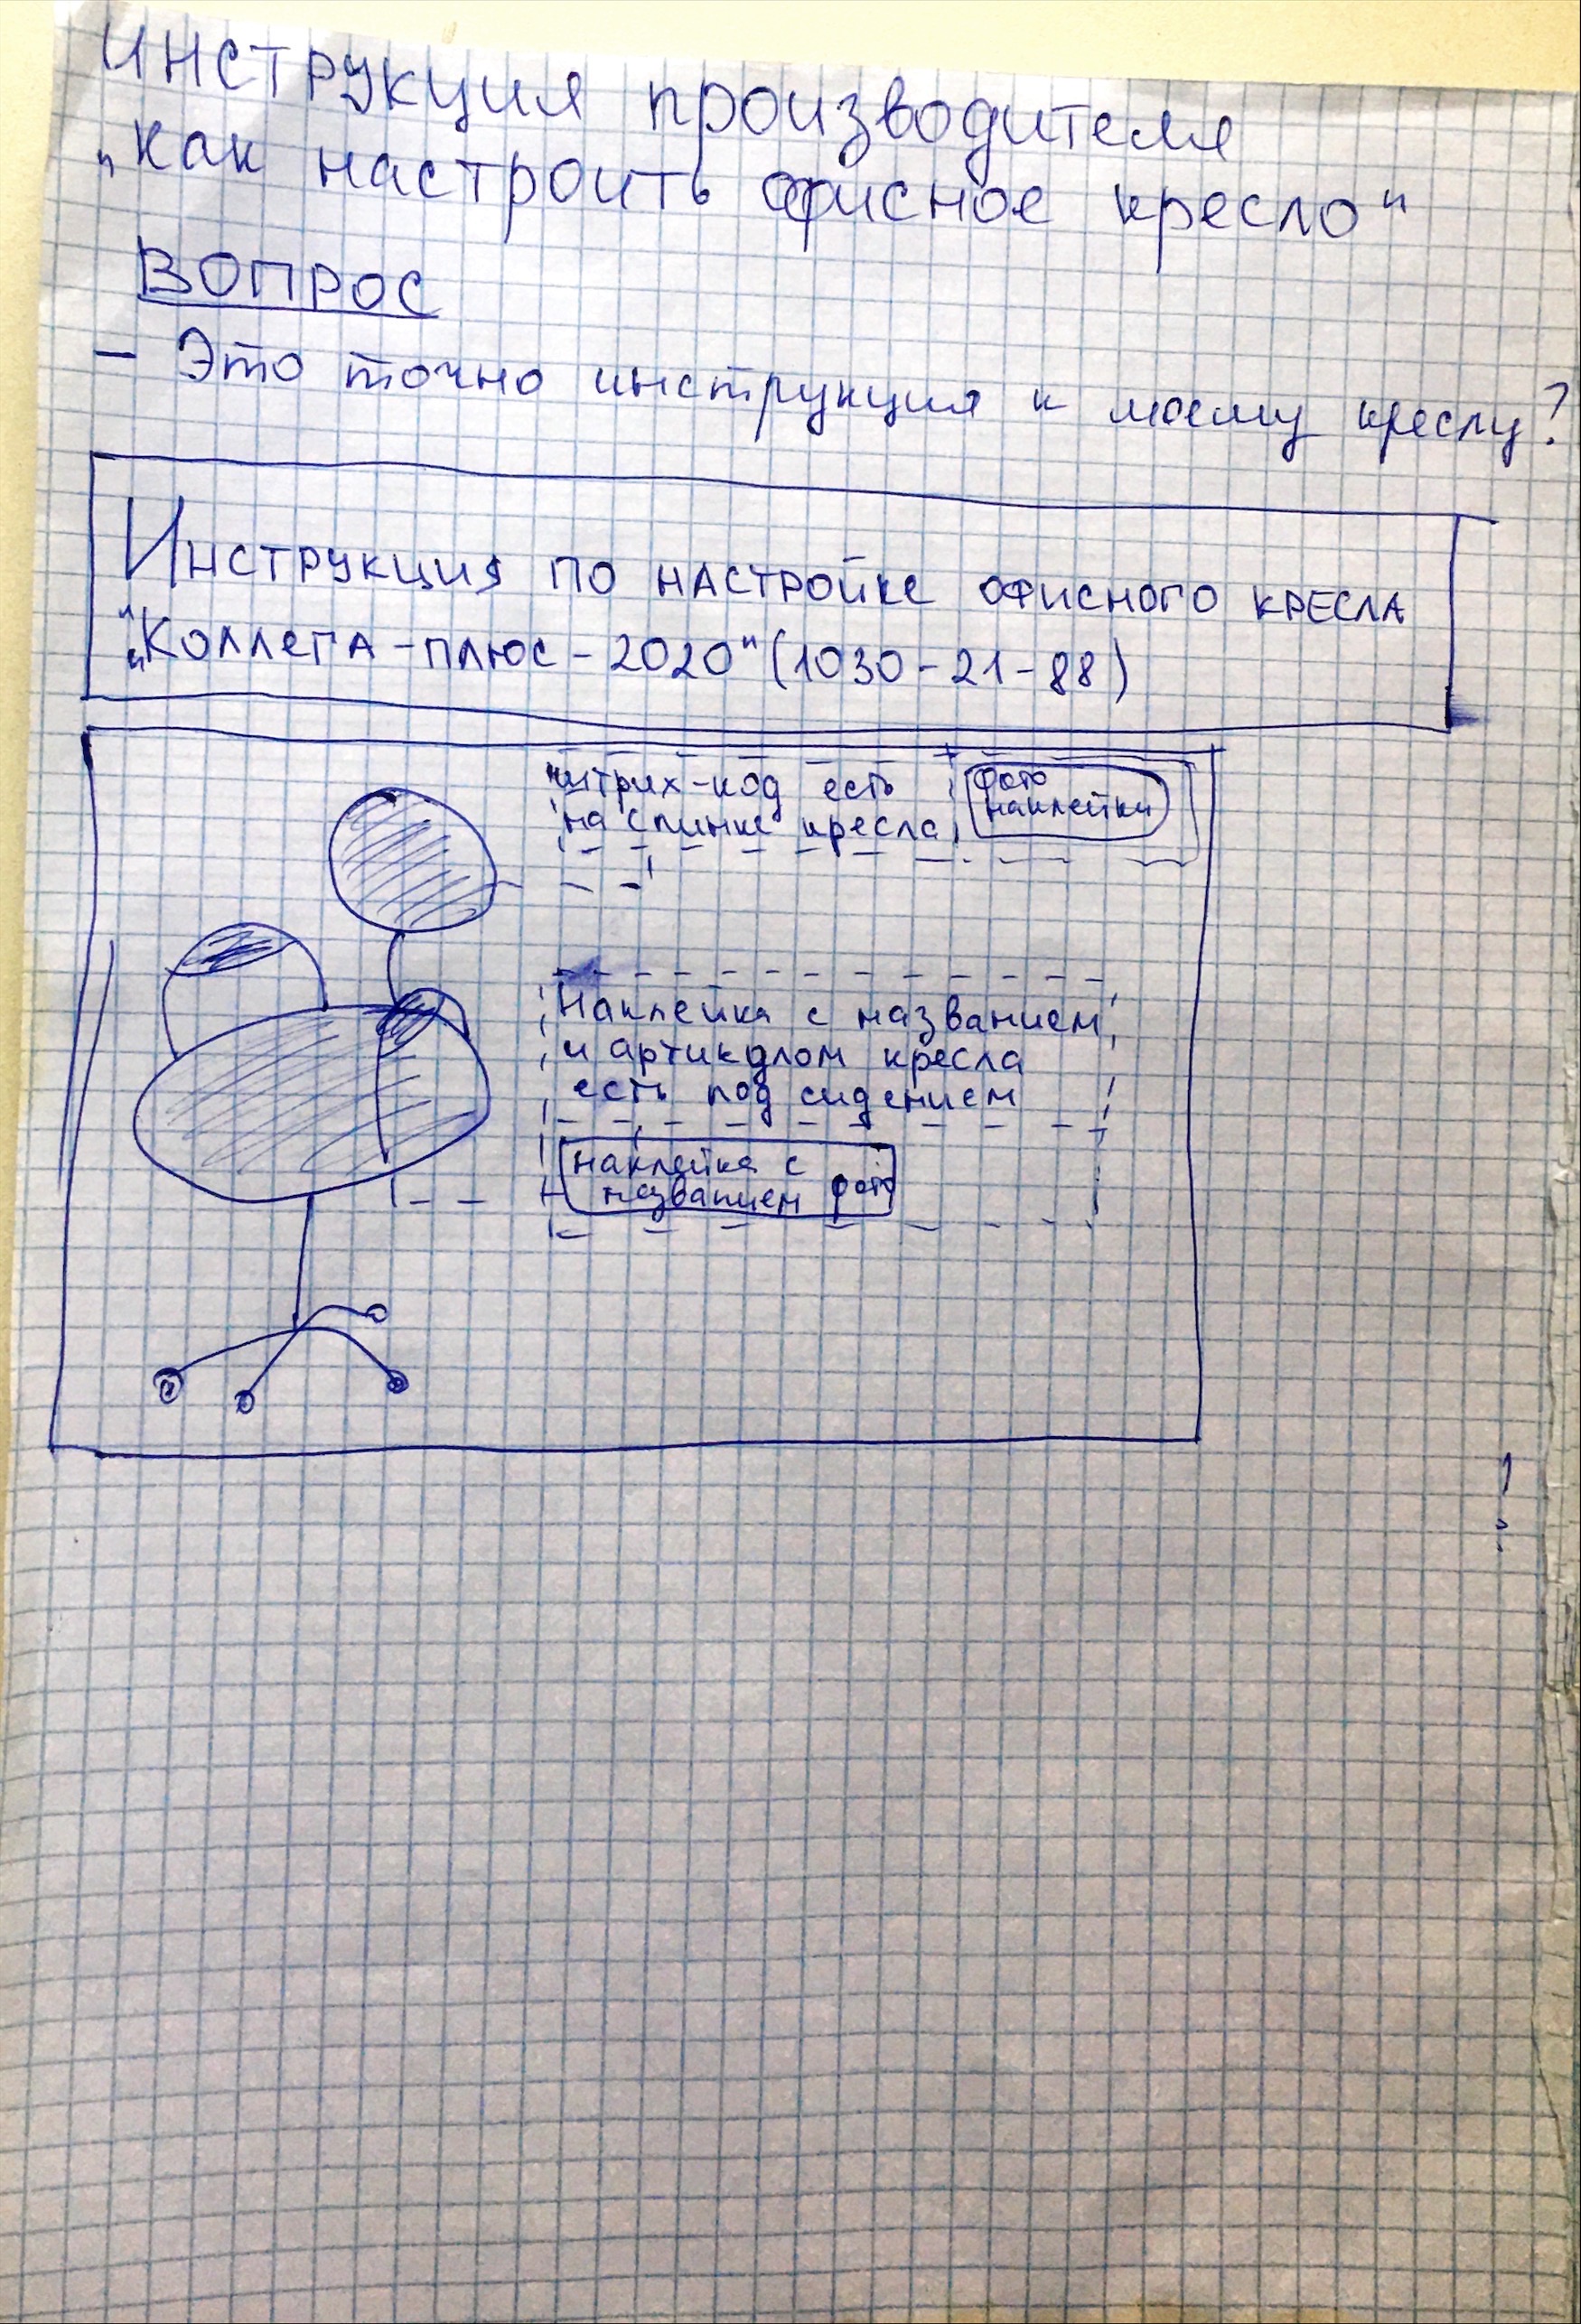 Инструкция производителя
„Как настроить офисное кресло“
ВОПРОС
– Это точно инструкция к моему креслу?
Инструкция по настройке офисного кресла
„Коллега-плюс-2020" (1030-21-88)
штрих-код есть
на спинке кресла
фото
наклейки
Наклейка с названием
и артикулом кресла
есть под сидением
наклейка с
названием фото